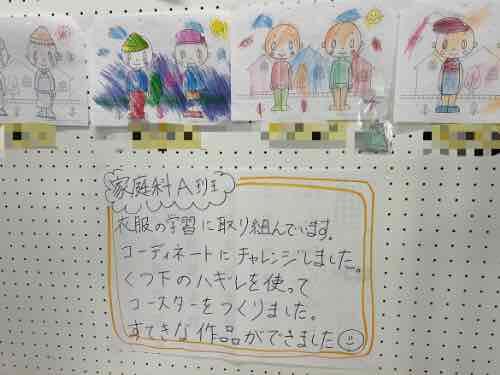 家庭科A班
衣服の学習に取り組んでいます。
コーディネートにチャレンジしました。
くつ下のハギレを使って
コースターをつくりました。
すてきな作品ができました